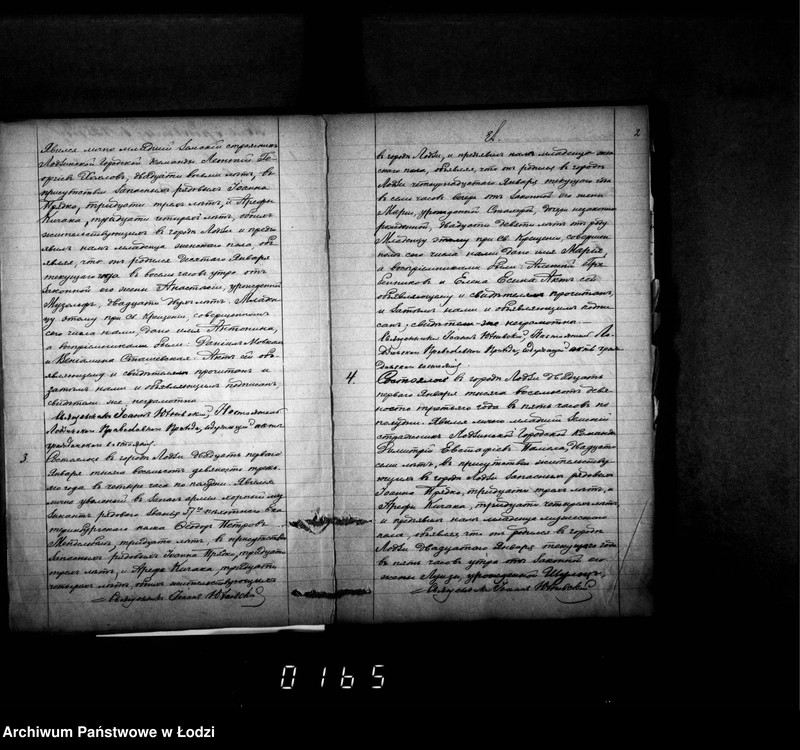 Явился лично младший Земский стражник
Лодзинской Городской Команды
двадцати восьми лѣтъ, въ
присутствіи запасныхъ рядовыхъ Іоанна
Прядко, тридцати трехъ лѣтъ, и Арефы
Качака, тридцати четырехъ лѣтъ, обоихъ
жительствующихъ въ городѣ Лодзи и предъ-
явилъ намъ младенца женскаго пола, объ-
являя, что онъ родился десятаго Января
текущаго года въ восемь часовъ утра отъ
законной его жены Анастасіи, урожденной
двадцати двухъ лѣтъ. Младен-
цу этому при св. крещеніи, совершенномъ
сего числа нами, дано имя Антонина,
а воспріемниками были: Даніилъ
и Актъ сей объ-
являющему и свидѣтелямъ прочитанъ и
затѣмъ нами и объявляющимъ подписанъ,
свидѣтели же неграмотны.
Священникъ Іоаннъ Настоятель
Лодзинскаго Православнаго Прихода, содержащій акты
гражданскаго состоянія
3. Состоялся въ городѣ Лодзи двадцать перваго
Января тысяча восемьсотъ девяносто треть-
яго года въ четыре часа по полудни. Явился
лично уволенный въ запасъ арміи
рядоваго званія 37го пѣхотнаго Ека-
теринбургскаго полка Ѳедоръ Петровъ
тридцати лѣтъ, въ присутствіи
запасныхъ рядовыхъ Іоанна Прядко, тридцати
трехъ лѣтъ, и Арефы Качака, тридцати
четырехъ лѣтъ, обоихъ жительствующихъ
Священникъ Іоаннъ
2
въ городѣ Лодзи, и предъявилъ намъ младенца жен-
скаго пола, объявляя, что онъ родился въ городѣ
Лодзи четырнадцатаго Января текущаго года
въ семь часовъ вечера отъ законной его жены
Маріи, урожденной дочери незаконно-
рожденной, двадцати девяти лѣтъ отъ роду
Младенцу этому при св. крещеніи, совершен-
номъ сего числа нами дано имя Марія,
а воспріемниками были: Алексѣй Гре-
бенниковъ и Елена Есина. Актъ сей
объявляющему и свидѣтелямъ прочитанъ,
и затѣмъ нами и объявляющимъ подпи-
санъ, свидѣтели же неграмотны.
Священникъ Іоаннъ Настоятель Ло-
дзинскаго Православнаго Прихода, содержащій акты граж-
данскаго состоянія
4. Состоялся въ городѣ Лодзи двадцать
перваго Января тысяча восемьсотъ девя-
носто третьяго года въ пять часовъ по
полудни. Явился лично младшій Земскій
стражникъ Лодзинской Городской Команды
Димитрій Евстафіевъ двадцати
семи лѣтъ, въ присутствіи жительствую-
щихъ въ городѣ Лодзи запасныхъ рядовыхъ
Іоанна Прядко, тридцати трехъ лѣтъ, и
Арефы Качака, тридцати четырехъ лѣтъ,
и предъявилъ намъ младенца мужескаго
пола, объявляя, что онъ родился въ городѣ
Лодзи двадцатаго Января текущаго года
въ пять часовъ утра отъ законной его
жены Луизы, урожденной
Священникъ Іоаннъ
0165
Archiwum Państwowe w Łodzi